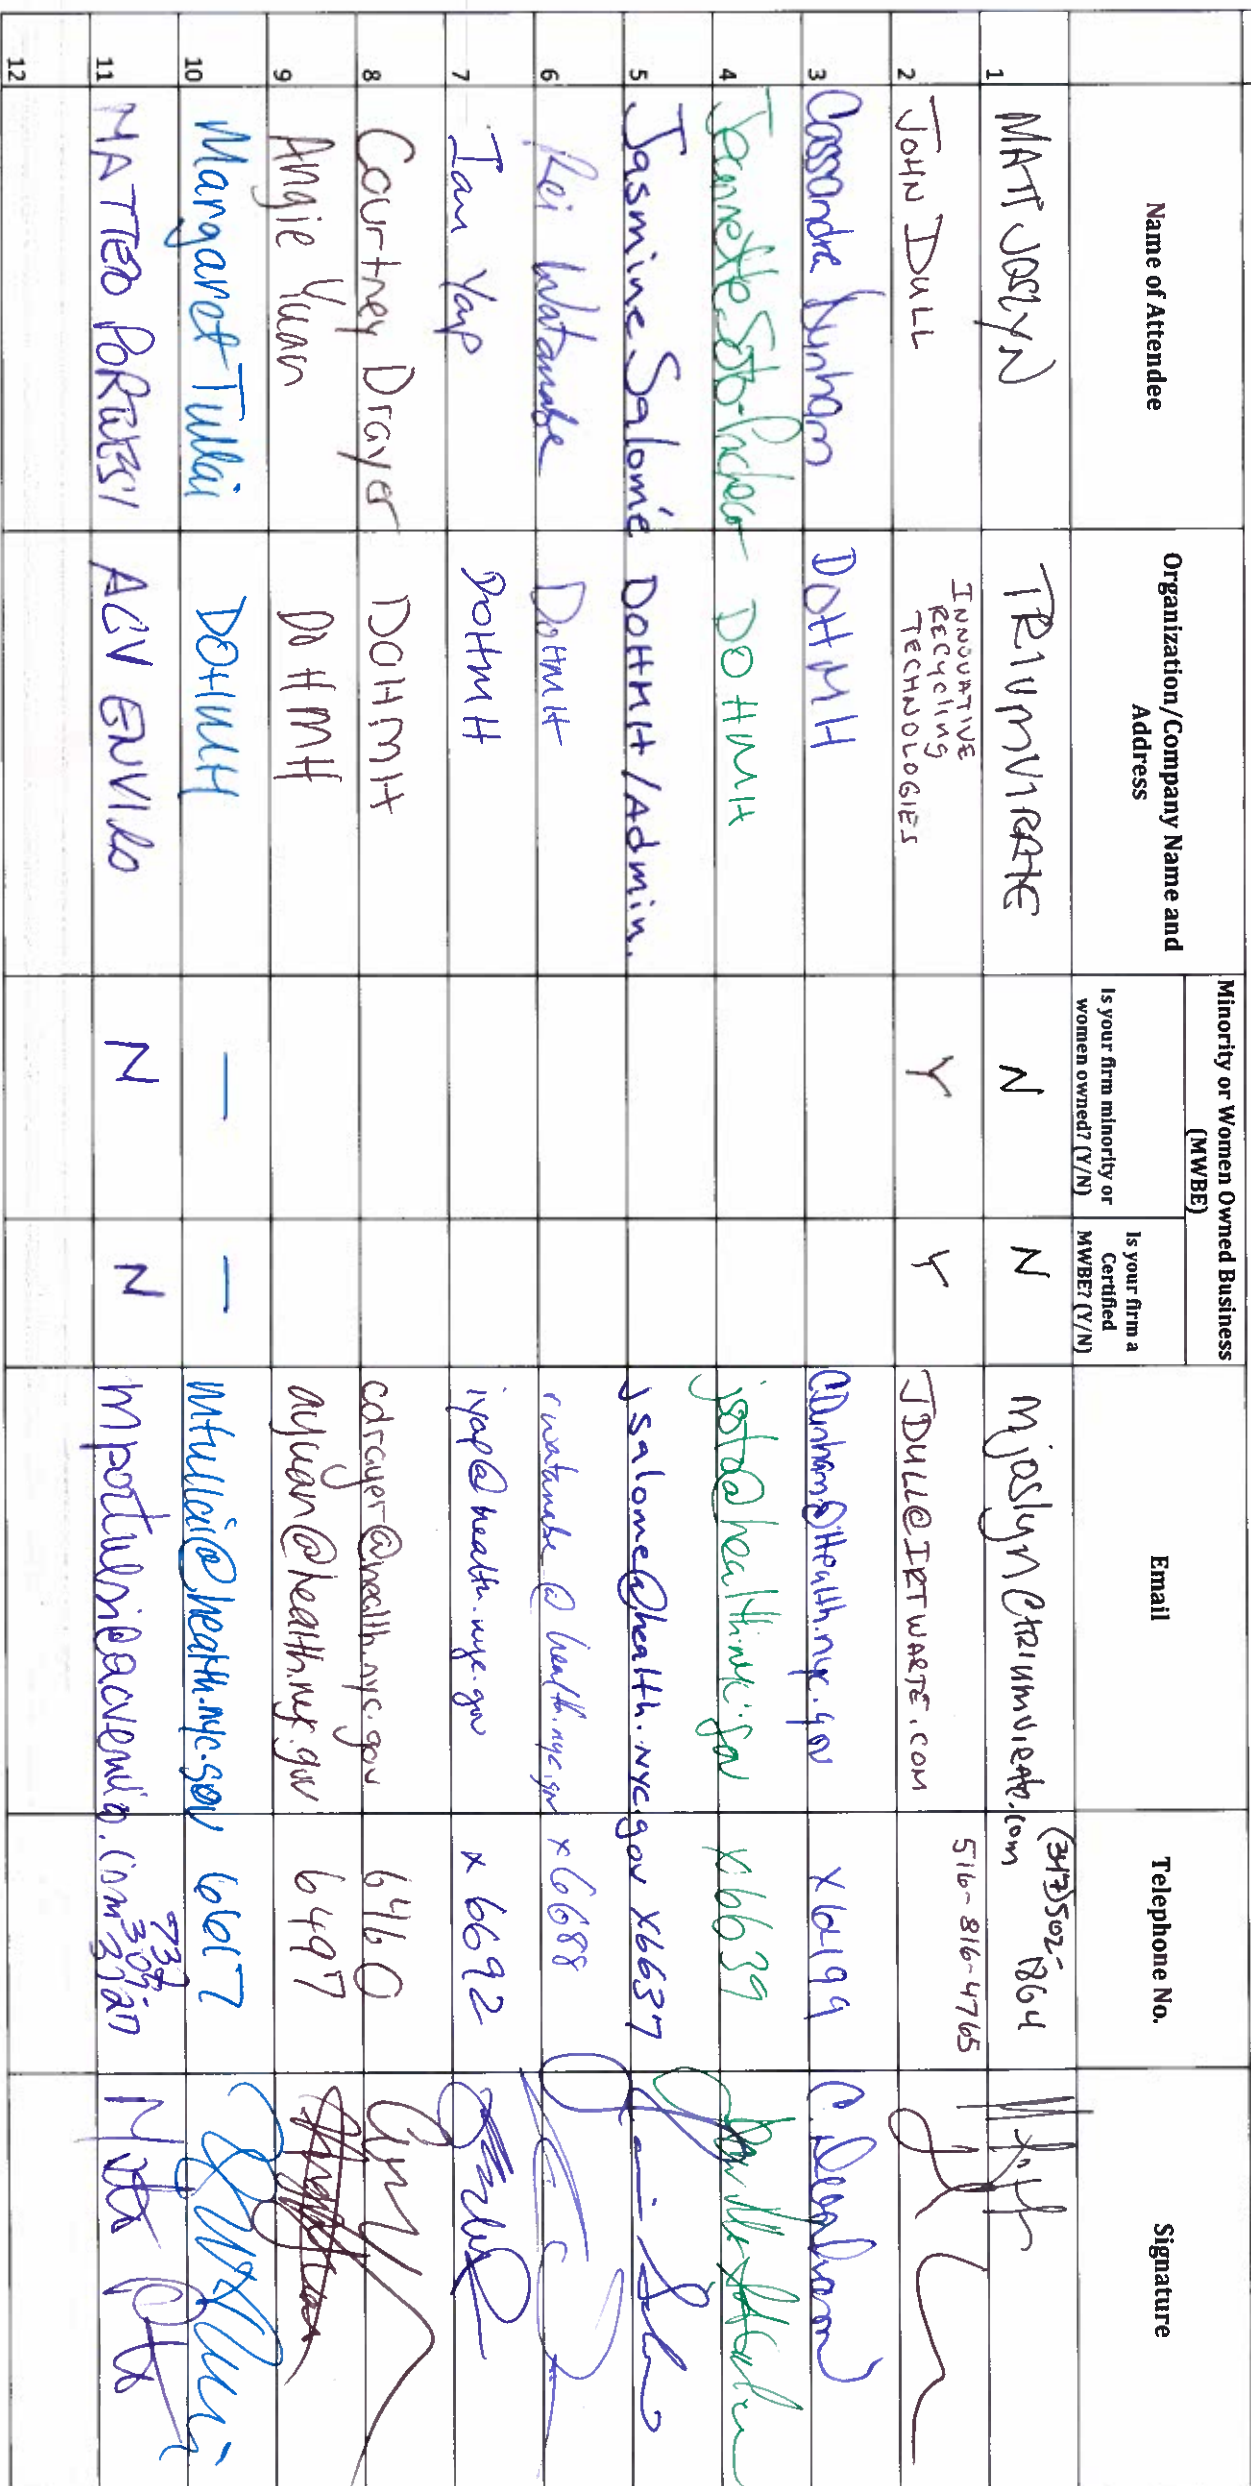 Name of Attendee
Organization/Company Name and Address
Minority or Women Owned Business (MWBE)
Is your firm minority or women owned? (Y/N)
Is your firm a Certified MWBE? (Y/N)
Email
Telephone No.
Signature
1 MATT JOSLYN TRIUMVIRATE N N mjoslyn@TRIUMVIRATE.com (347)502-1864
2 JOHN DULL INNOVATIVE RECYCLING TECHNOLOGIES Y Y JDULL@IRTWASTE.COM 516-816-4765
3 Cassandra Dunham DOHMH CDunham@Health.nyc.gov x6199 C. Dunham
4 Jeannette Soto-Pacheco DOHMH jsoto@health.nyc.gov x6639
5 Jasmine Salomé DOHMH/Admin. jsalome@health.nyc.gov x6637
6 Rei Watanabe DOHMH rwatanabe@health.nyc.gov x6688
7 Ian Yap DOHMH iyap@health.nyc.gov x6692
8 Courtney Drayer DOHMH cdrayer@health.nyc.gov 6460
9 Angie Yuan DOHMH ayuan@health.nyc.gov 6497
10 Margaret Tullai DOHMH — — mtullai@health.nyc.gov 6617
11 MATTEO ACV ENVIRO N N 732
12